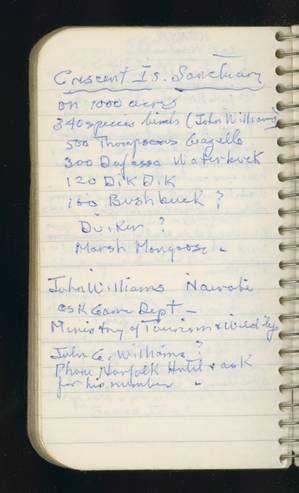 Crescent Is. Sanctuary
on 1000 acres
340 species birds (John Williams)
500 Thompsons Gazelle
300 Defassa Waterbuck
120 Dik Dik
160 Bushbuck ?
Duiker ?
Marsh Mongoose
John Williams Nairobi
ask Game Dept -
Ministry of Tourism & Wild life
John G. Williams ?
Phone Norfolk Hotel & ask
for his number